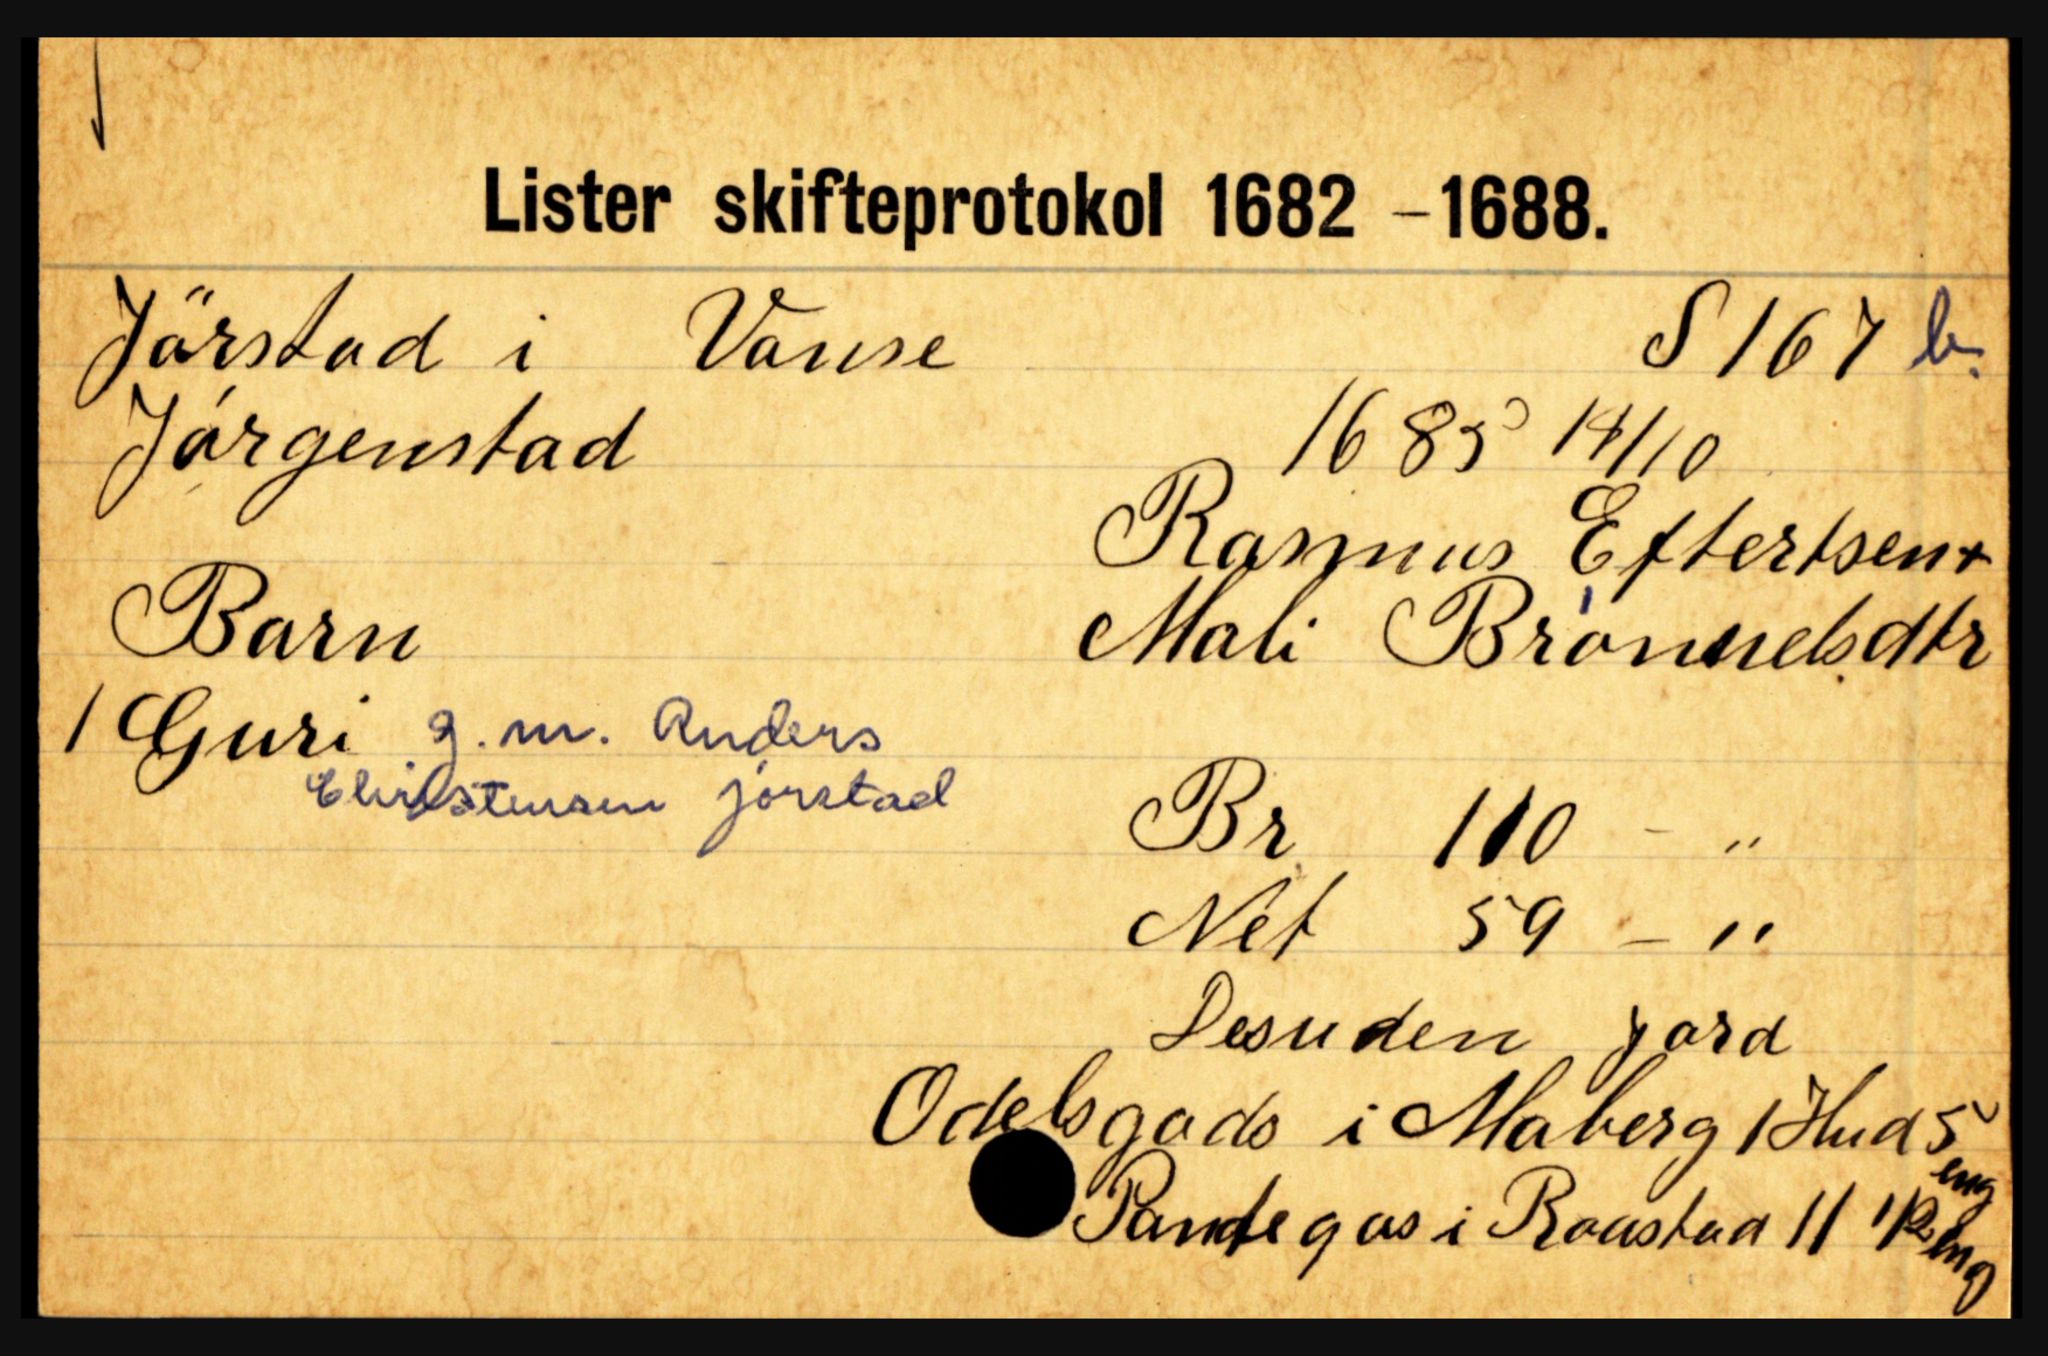 Lister skifteprotokol 1682 - 1688.
Jörstad i Vanse S 167 b.
Jórgenstad 1685 14/10
Rasmus Eftertsen +
Barn Mali Brönnelsdtr
1 Guri g.m. Anders
Christensen jórstad
Br 110 - "
Net 59 - "
Desuden jord
Odelsgods i Maberg 1 Hud 5 eng
Pantegos i Raastad 11 1/2 eng